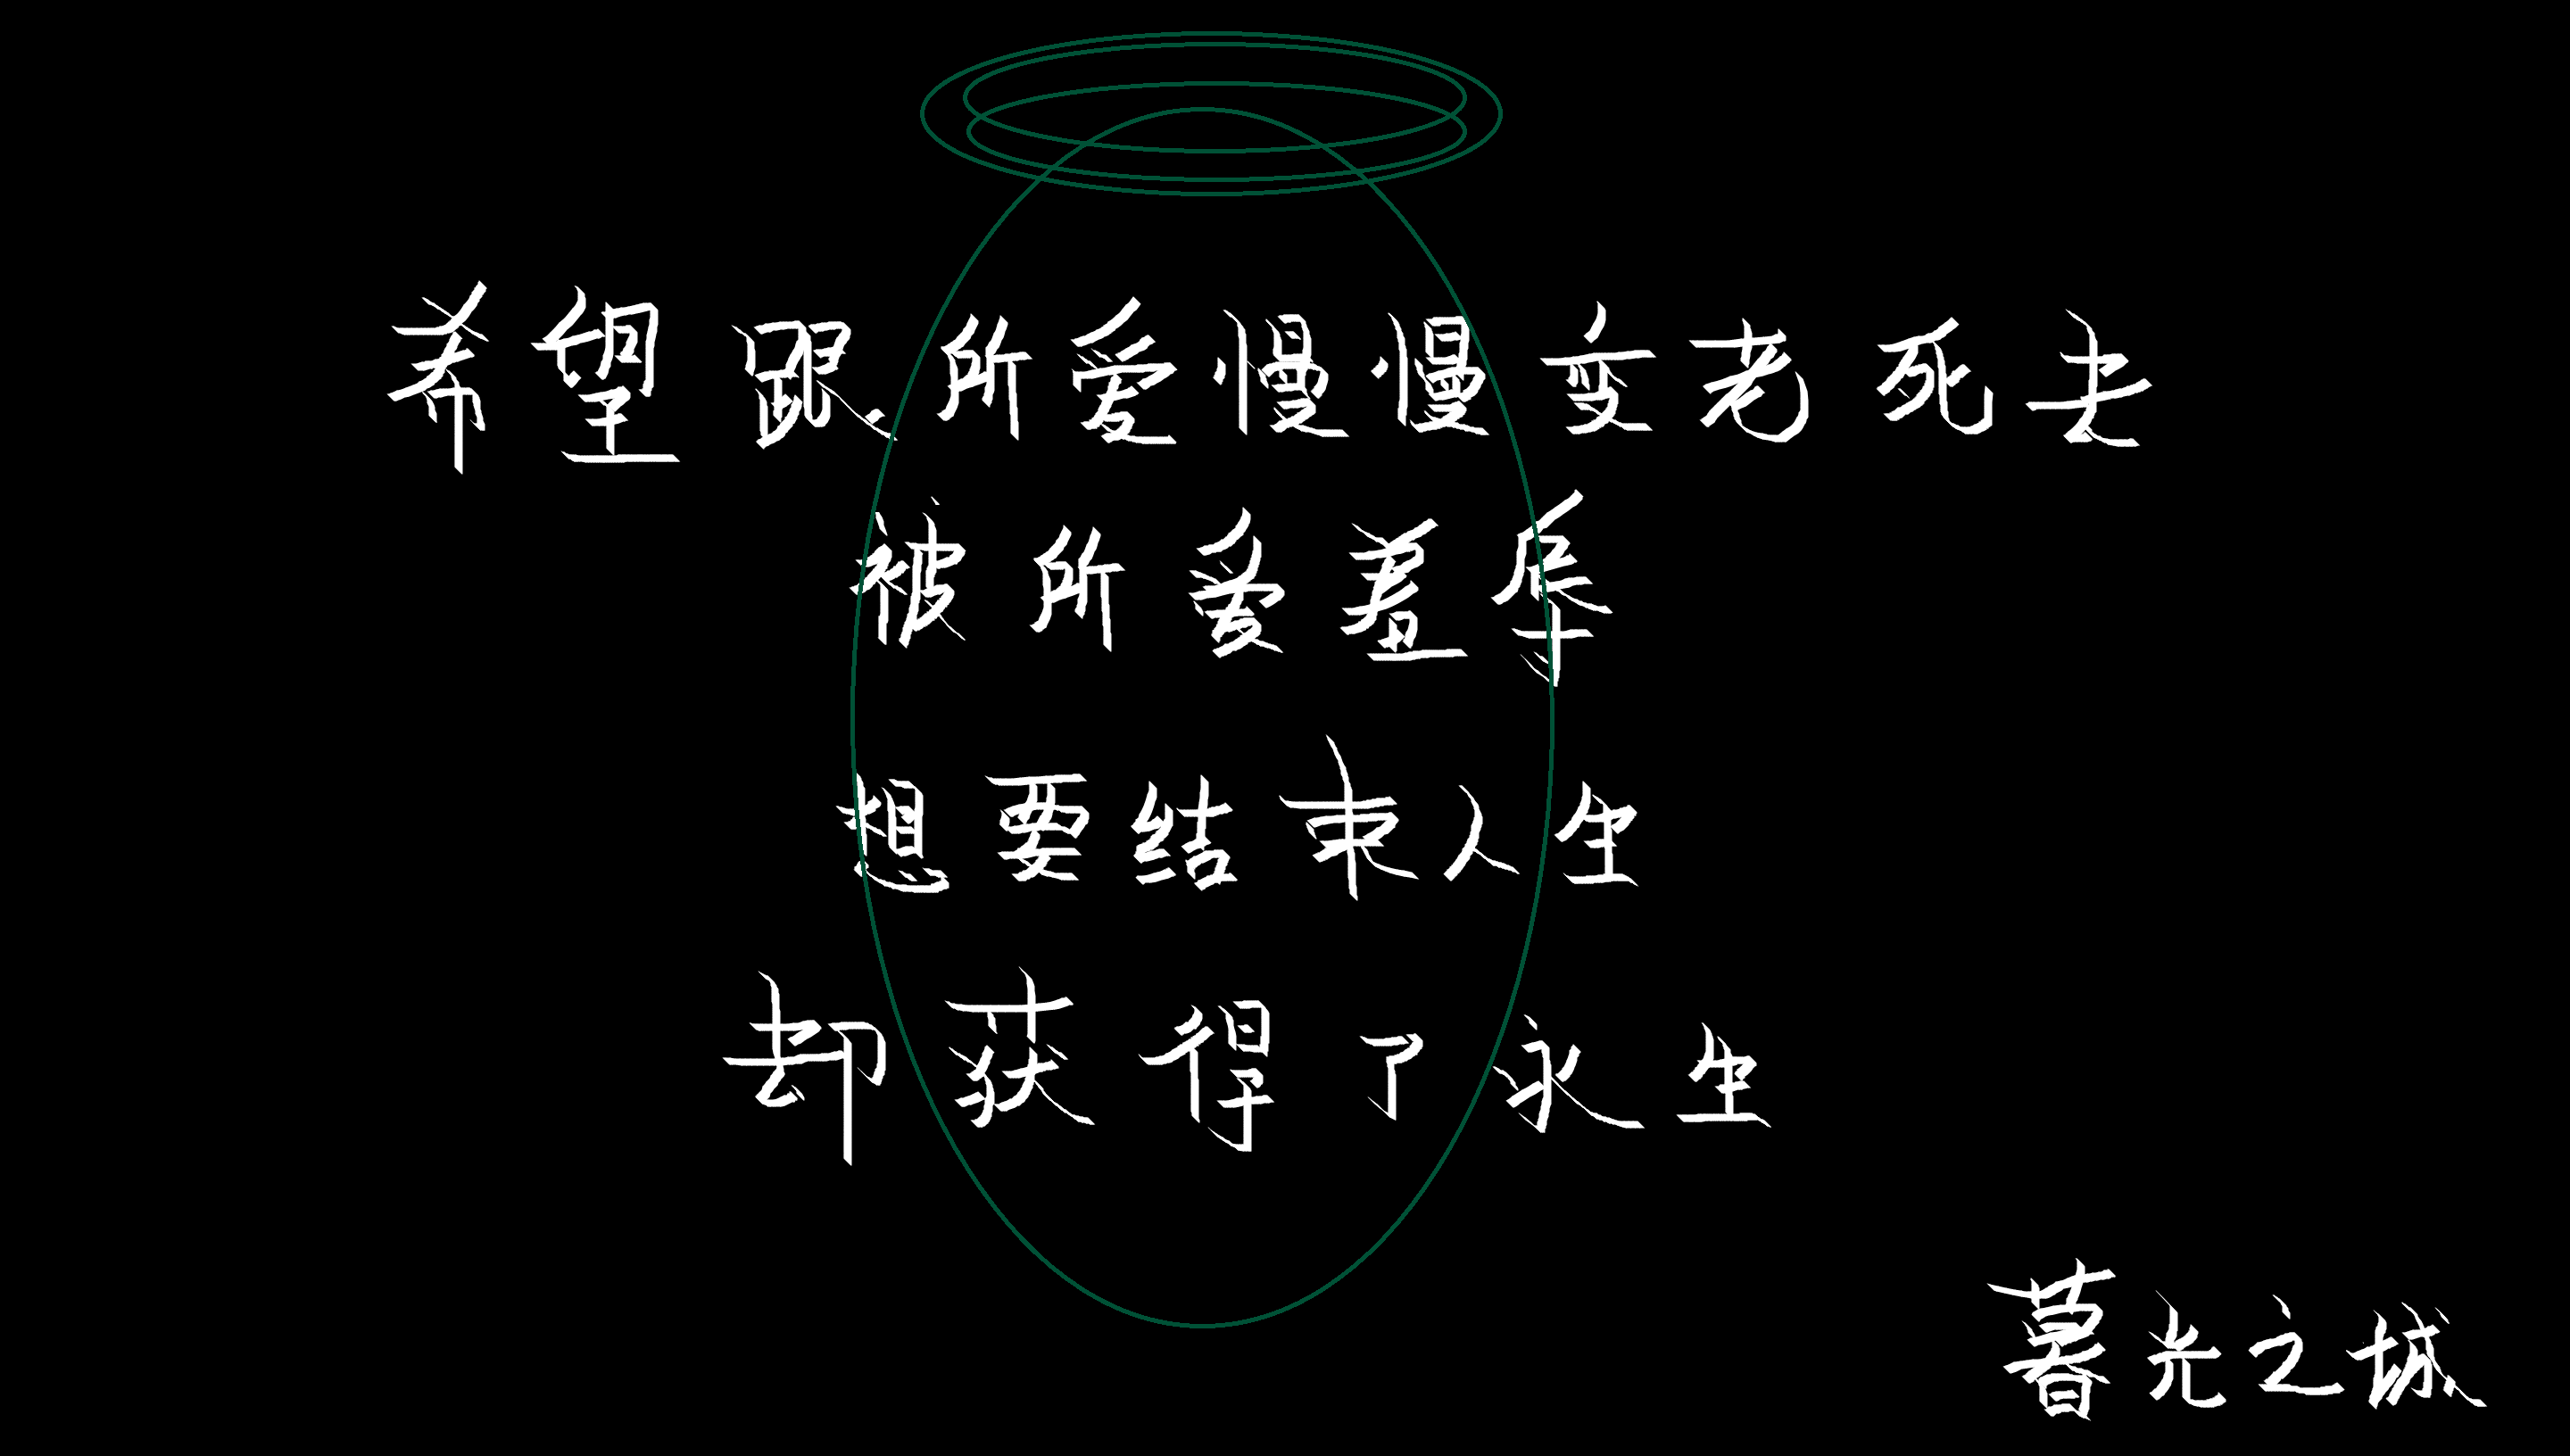 希望跟所爱慢慢变老死去
被所爱羞辱
想要结束人生
却获得了永生
暮光之城